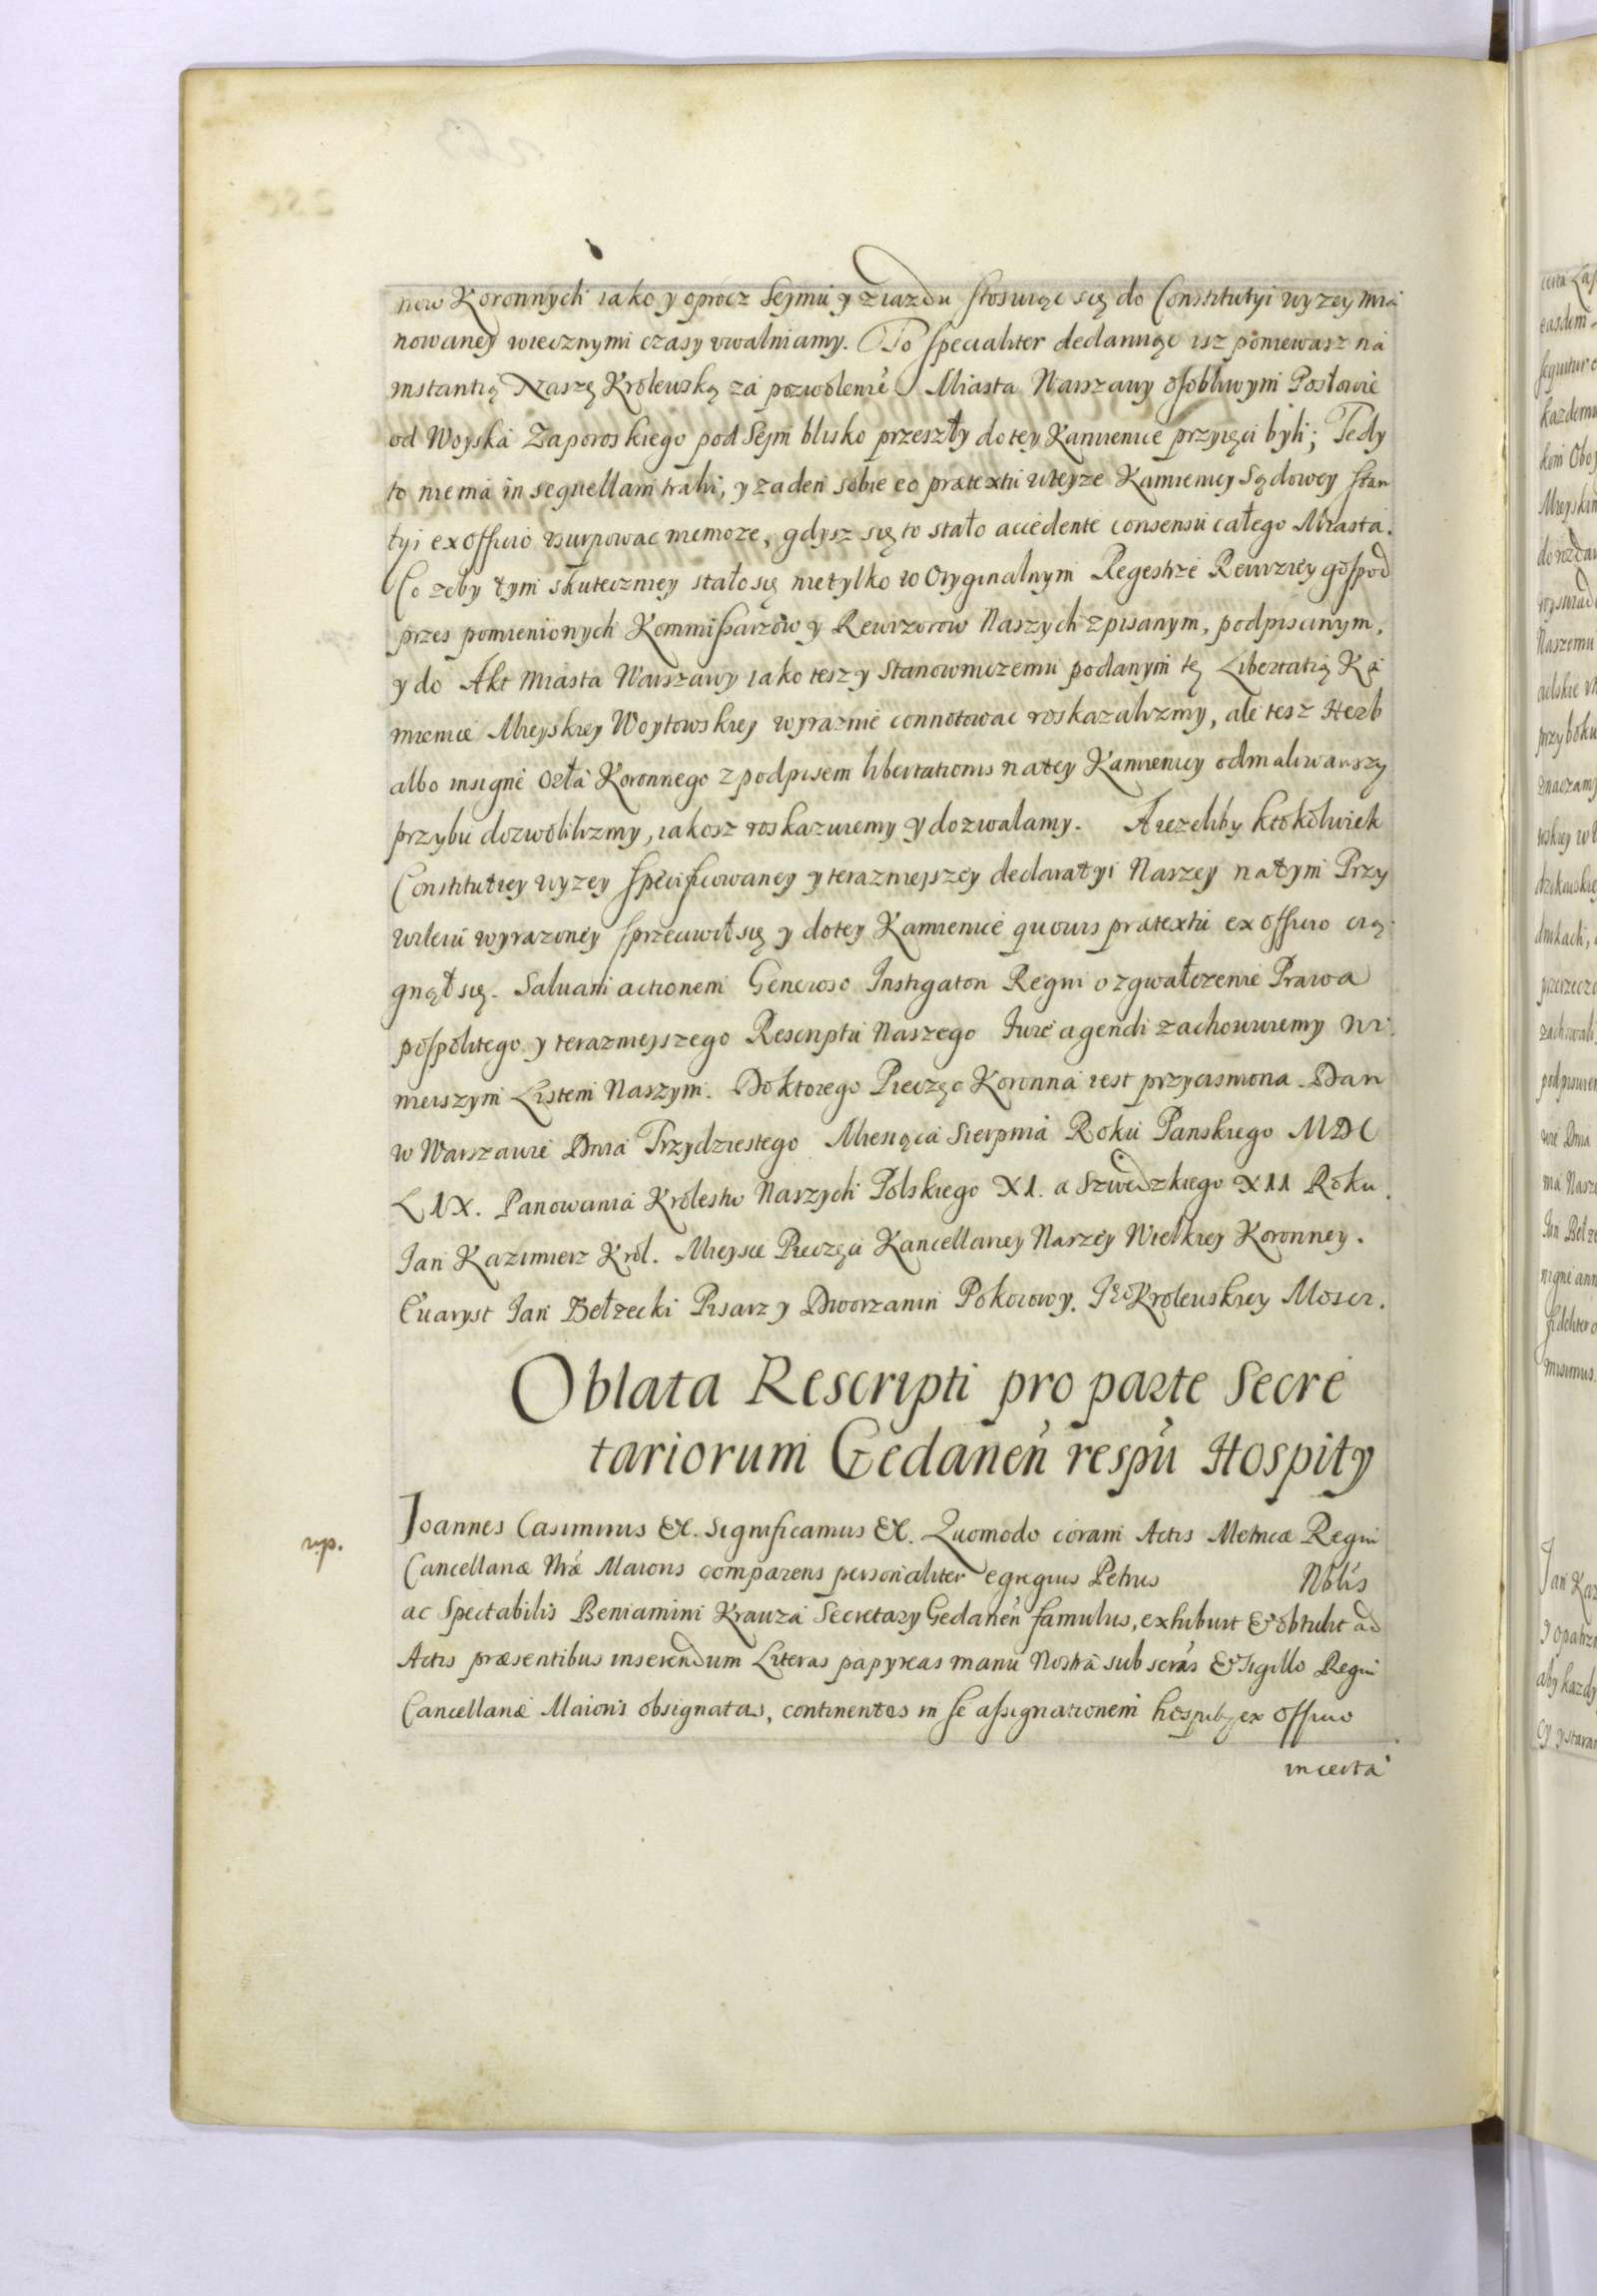 now Koronnych iako y oprocz Sejmu y Ziazdu stosuiąc się do Constitutyi wyzey mia
nowaney wiecznymi czasy uwalniamy. To specialiter declaruiąc isz poniewasz na
instantią Naszę Krolewską za pozwolenie Miasta Warszawy osobliwymi Posłowie
od Woyska Zaporoskiego pod Sejm blisko przeszły do tey Kamienice przyięci byli; Tedy
to niema in sequellam trahi, y zaden sobie eo prætextu w teyze Kamienicy Sądowey stan
tyi ex officio usurpowac niemoze, gdysz się to stało accedente consensu całego Miasta.
Co zeby tym skuteczniey stało się nietylko w Oryginalnym Regestrze Rewiziey gospod
przes pomienionych Kommissarzow y Rewizorow Naszych zpisanym, podpisanym,
y do Akt Miasta Warszawy iako tesz y Stanowniczemu podanym tę Libertatią Ka
mienice Mieyskiey Woytowskiey wyraznie connotowac roskazalizmy, ale tesz Herb
albo insigne Orła Koronnego z podpisem libertationis na tey Kamienicy odmaliwawszy
przybic dozwolilizmy, iakosz roskazuiemy y dozwalamy. A iezeliby ktokolwiek
Constitutiey wyzey specificowaney y terazniejszey declaratyi Naszey na tym Przy
wileiu wyrazoney sprzeciwił się y do tey Kamienice quovis prætextu ex officio cią
gnął się. Salvam actionem Generoso Instigatori Regni o zgwałczenie Prawa
pospolitego y terazniejszego Rescriptu Naszego Iure agendi zachowuiemy ni
nieiszym Listem Naszym. Do ktorego Pieczęc Koronna iest przycisniona. Dan
w Warszawie Dnia Trzydziestego Miesiąca Sierpnia Roku Panskiego MDC
LIX. Panowania Krolestw Naszych Polskiego XI. a Szwedzkiego XII Roku.
Jan Kazimierz Krol. Mieysce Pieczęci Kancellariey Naszey Wielkiey Koronney.
Evaryst Jan Bełzecki Pisarz y Dworzanin Pokoiowy. JeoKrolewskiey Mosci.
Oblata Rescripti pro parte Secre
tariorum Gedanen respu Hospity
Joannes Casimirus &c. Significamus &c. Quomodo coram Actis Metricæ Regni
rp.
Cancellariæ Nræ Maioris comparens personaliter egregius Petrus Nblis
ac Spectabilis Beniamini Krauza Secretary Gedanen famulus, exhibuit & obtulit ad
Actis præsentibus inserendum Literas papyreas manu Nostra subscras & sigillo Regni
Cancellariæ Maioris obsignatas, continentes in se assignationem hospity ex officio
incerta